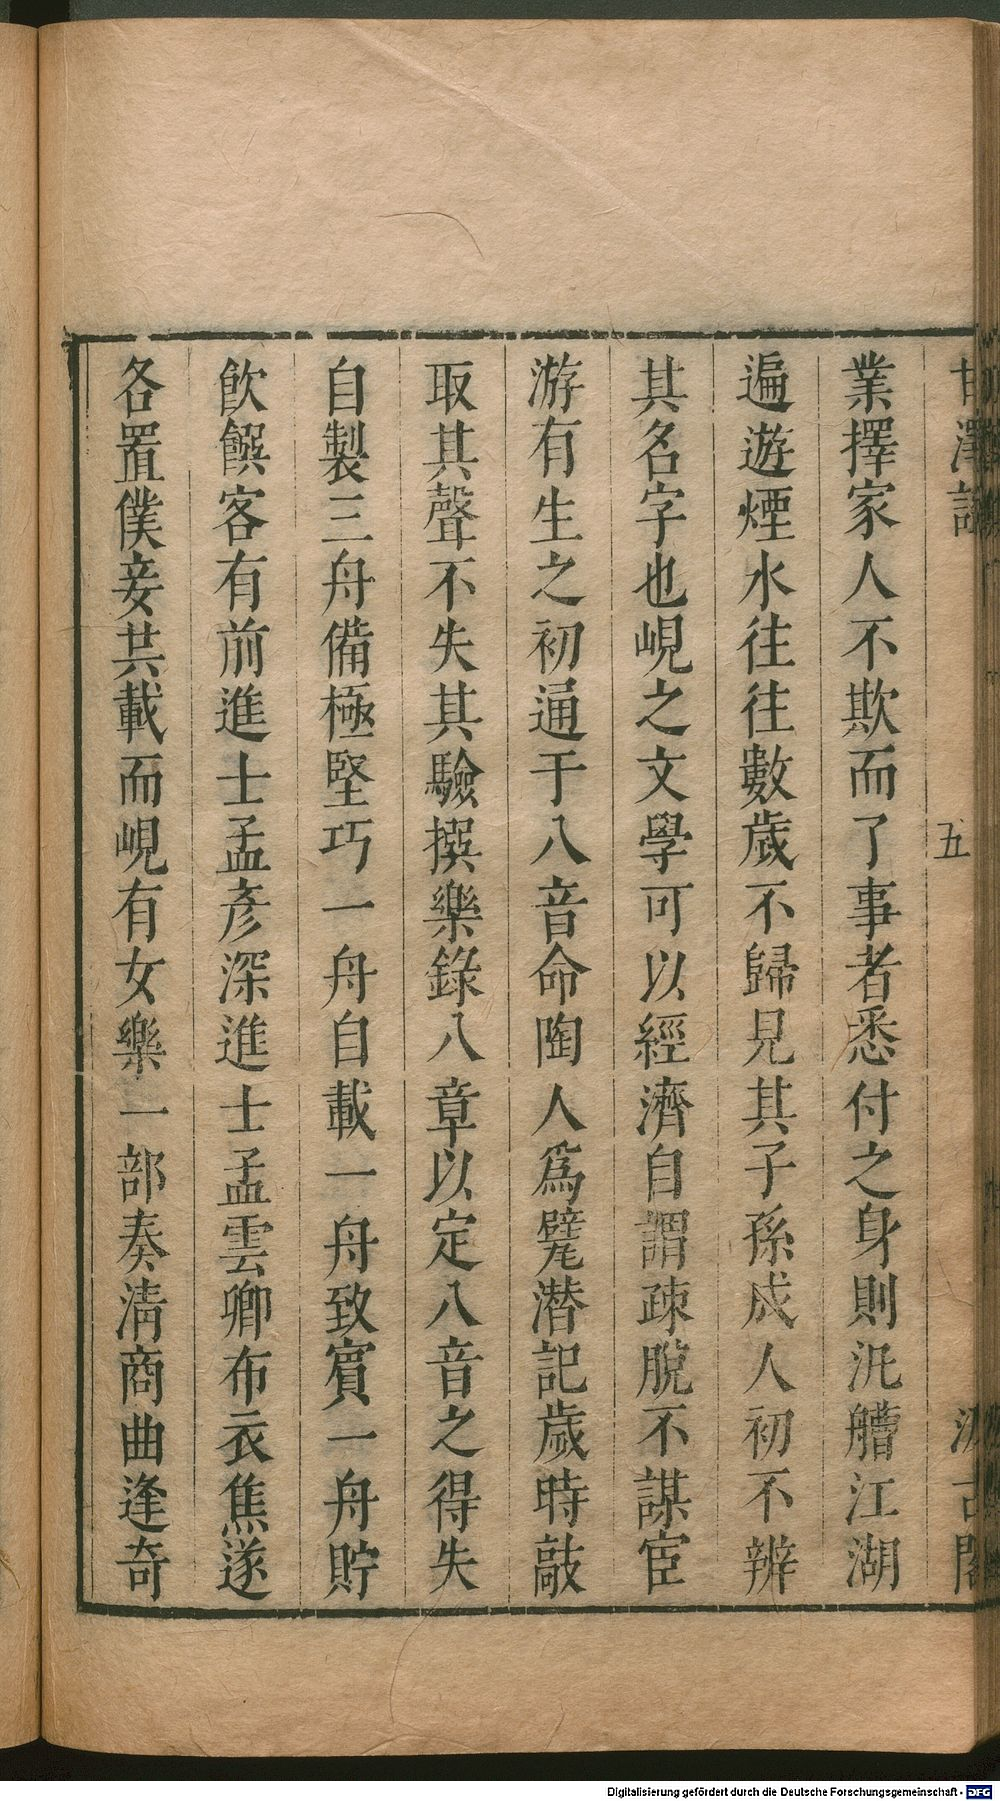 甘澤謠
五
汲古閣
業擇家人不欺而了事者悉付之身則汎艚江湖
遍遊煙水往往數歲不歸見其子孫成人初不辨
其名字也峴之文學可以經濟自謂疎脫不謀宦
游有生之初通于八音命陶人爲甓潜記歲時敲
取其聲不失其驗撰樂錄八章以定八音之得失
自製三舟備極堅巧一舟自載一舟致賓一舟貯
飲饌客有前進士孟彥深進士孟雲卿布衣焦遂
各置僕妾共載而峴有女樂一部奏淸商曲逢奇
Digitalisierung gefördert durch die Deutsche Forschungsgemeinschaft - DFG